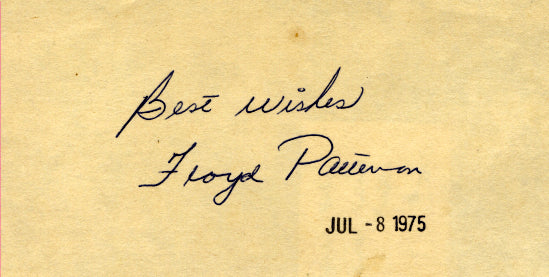 Best wishes
Floyd Patterson
JUL - 8 1975